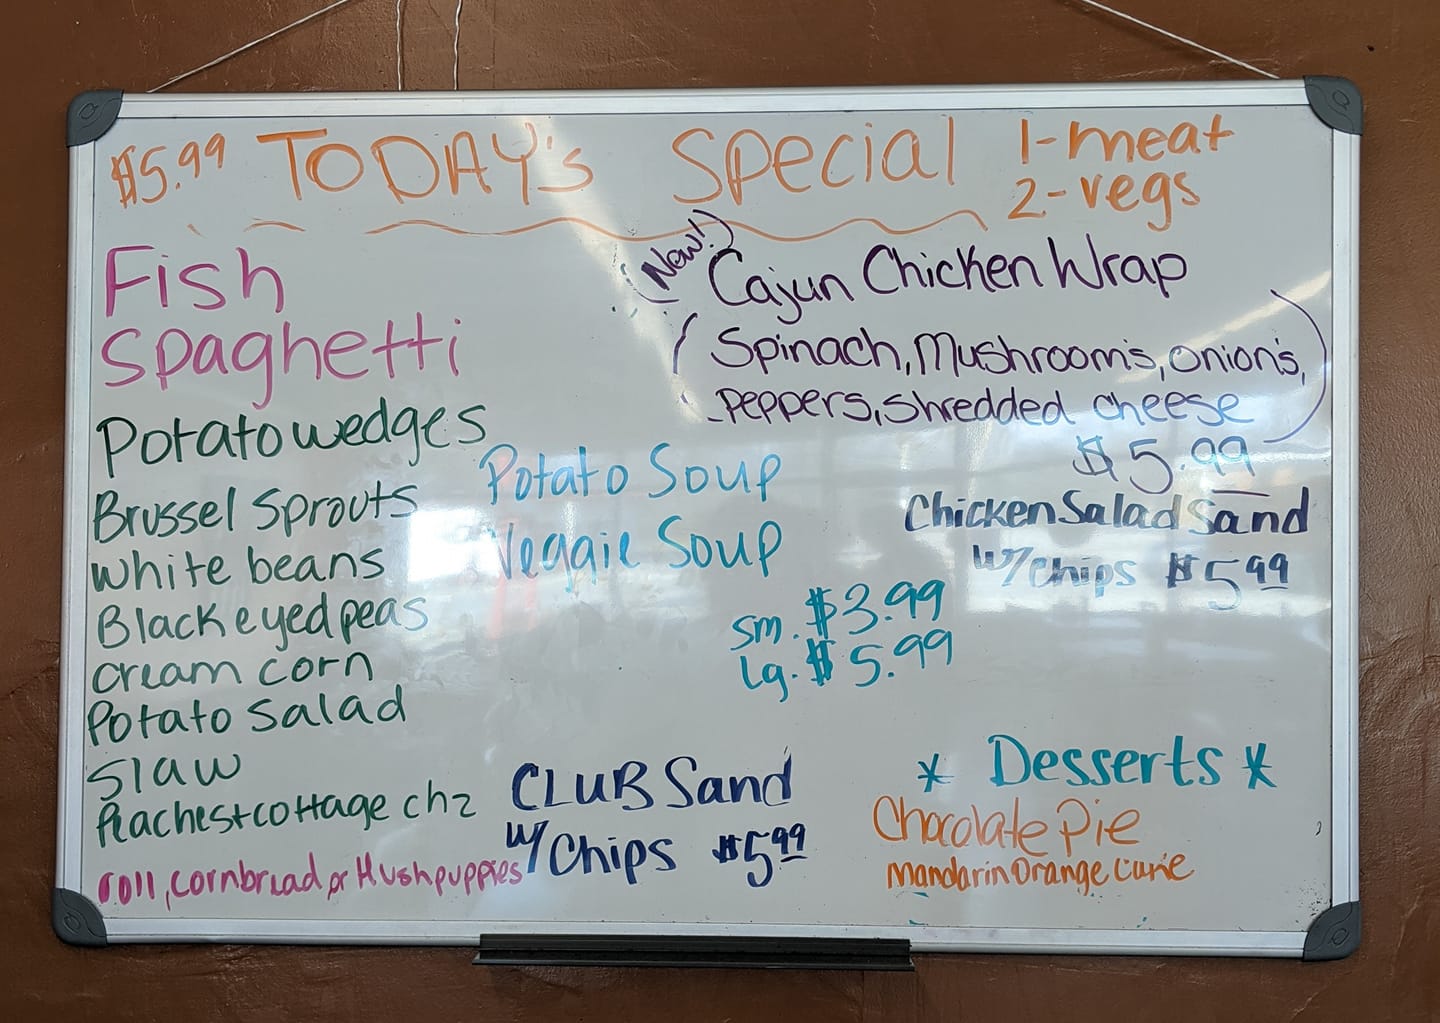 $5.99 TODAY's Special
1-meat
2-vegs
Fish
Spaghetti
Potato wedges
Brussel Sprouts
white beans
Black eyed peas
cream corn
Potato Salad
Slaw
Peaches+cottage chz
roll, cornbread or Hushpuppies
(New!)
Cajun Chicken Wrap
(Spinach, Mushroom's, onion's,
peppers, shredded cheese)
$5.99
Potato Soup
Veggie Soup
sm. $3.99
Lg. $5.99
Chicken Salad Sand
w/ Chips $5.99
CLUB Sand
w/ Chips $5.99
* Desserts *
Chocolate Pie
Mandarin Orange